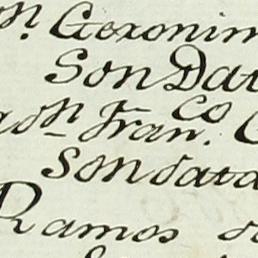 n. Geronim
Son Dat
n Fran.co
Son data
Ramos